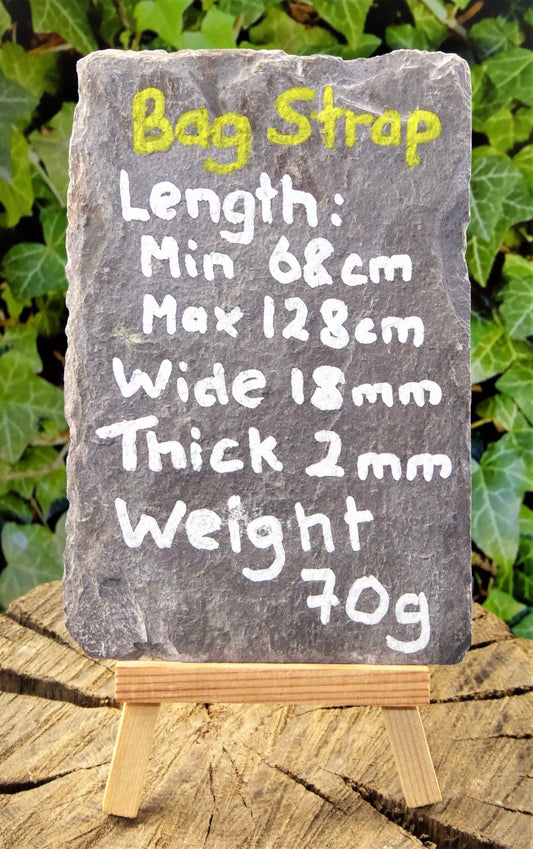 Bag Strap
Length:
Min 68cm
Max 128cm
Wide 18mm
Thick 2mm
Weight
70g